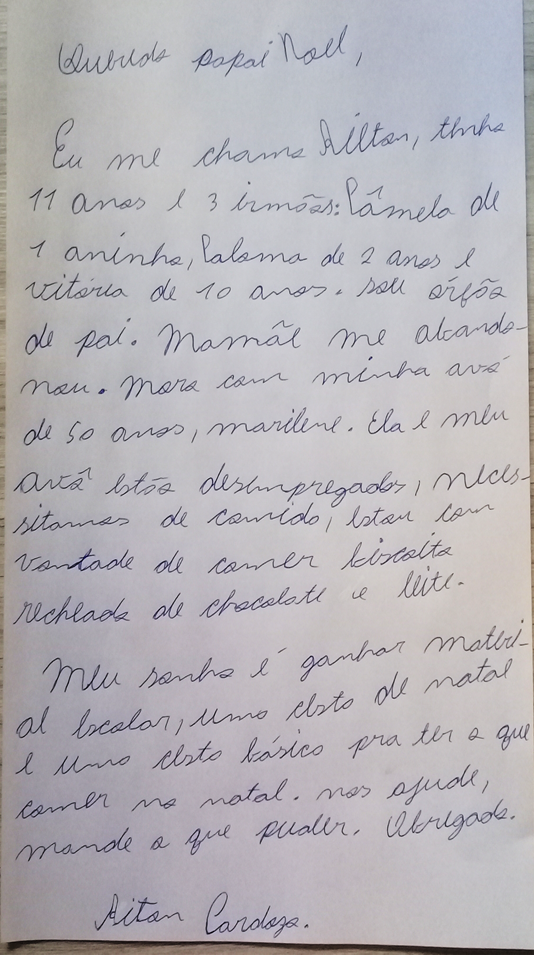 Querido papai Noel,
Eu me chamo Ailton, tenho
11 anos e 3 irmãos: Pâmela de
1 aninho, Paloma de 2 anos e
vitória de 10 anos. sou órfão
de pai. Mamãe me abando-
nou. Moro com minha avó
de 50 anos, marilene. Ela e meu
avô estão desempregados, neces-
sitamos de comida, estou com
vontade de comer biscoito
recheado de chocolate e leite.
Meu sonho é ganhar materi-
al escolar, uma cesta de natal
e uma cesta básica pra ter o que
comer no natal. nos ajude,
mande o que puder. Obrigado.
Aiton Cardozo.